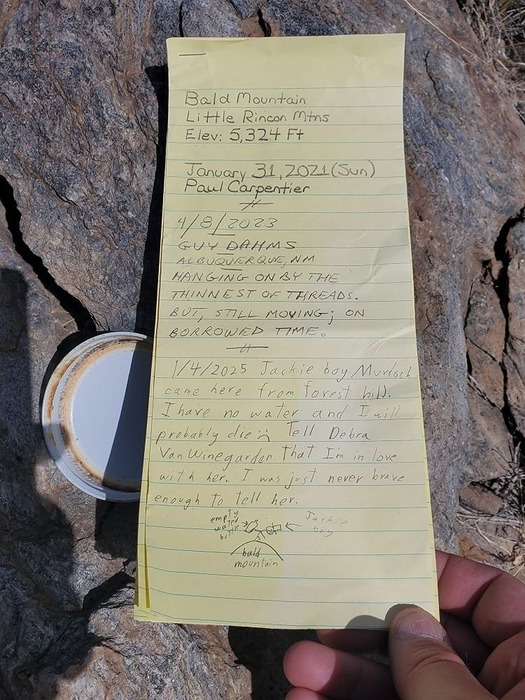 Bald Mountain
Little Rincon Mtns
Elev: 5,324 Ft
January 31, 2021 (Sun)
Paul Carpentier
4/8/2023
GUY DAHMS
ALBUQUERQUE, NM
HANGING ON BY THE
THINNEST OF THREADS.
BUT, STILL MOVING; ON
BORROWED TIME.
1/4/2025 Jackie boy Murloch
came here from forest hill.
I have no water and I will
probably die :( Tell Debra
VanWinegarden that I'm in love
with her. I was just never brave
enough to tell her.
empty
water
bottle
Jackie
boy
bald
mountain